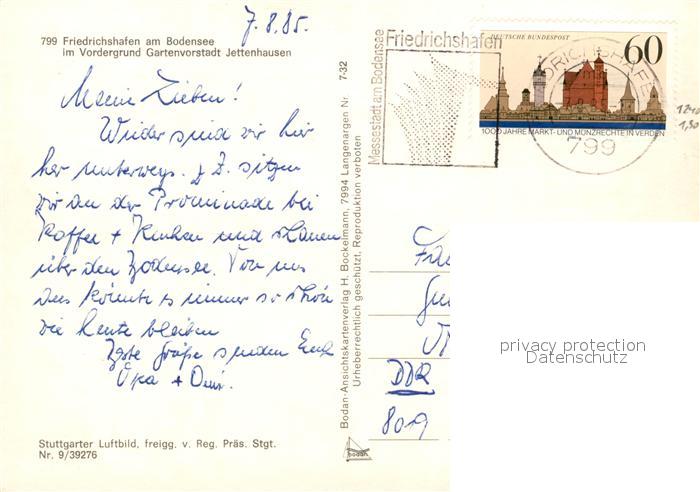 7.8.85.
799 Friedrichshafen am Bodensee
im Vordergrund Gartenvorstadt Jettenhausen
Meine Lieben!
Wieder sind wir hier
her unterwegs. z. Z. sitzen
wir an der Prominade bei
Kaffee + Kuchen und schauen
über den Bodensee. Von uns
aus könnte es immer so schön
wie heute bleiben
Beste Grüße senden Euch
Opa + Omi.
Stuttgarter Luftbild, freigg. v. Reg. Präs. Stgt.
Nr. 9/39276
7-32
Bodan-Ansichtskartenverlag H. Bockelmann, 7994 Langenargen Nr.
Urheberrechtlich geschützt, Reproduktion verboten
bodan
Messestadt am Bodensee
Friedrichshafen
DEUTSCHE BUNDESPOST
60
1000 JAHRE MARKT- UND MÜNZRECHTE IN VERDEN
799
1,50
DDR
8019
privacy protection
Datenschutz